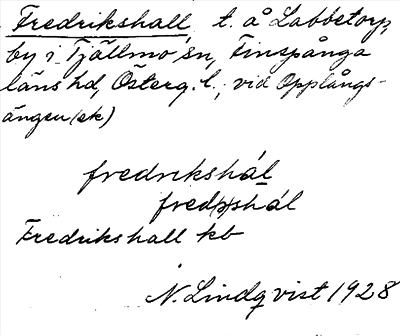 Fredrikshall, t. å Labbetorp,
by i Tjällmo sn, Finspånga
läns hd, Österg. l., vid Opplångs-
ängen (ek)
fredrikshál
fred(r)shál
Fredrikshall kb
N. Lindqvist 1928